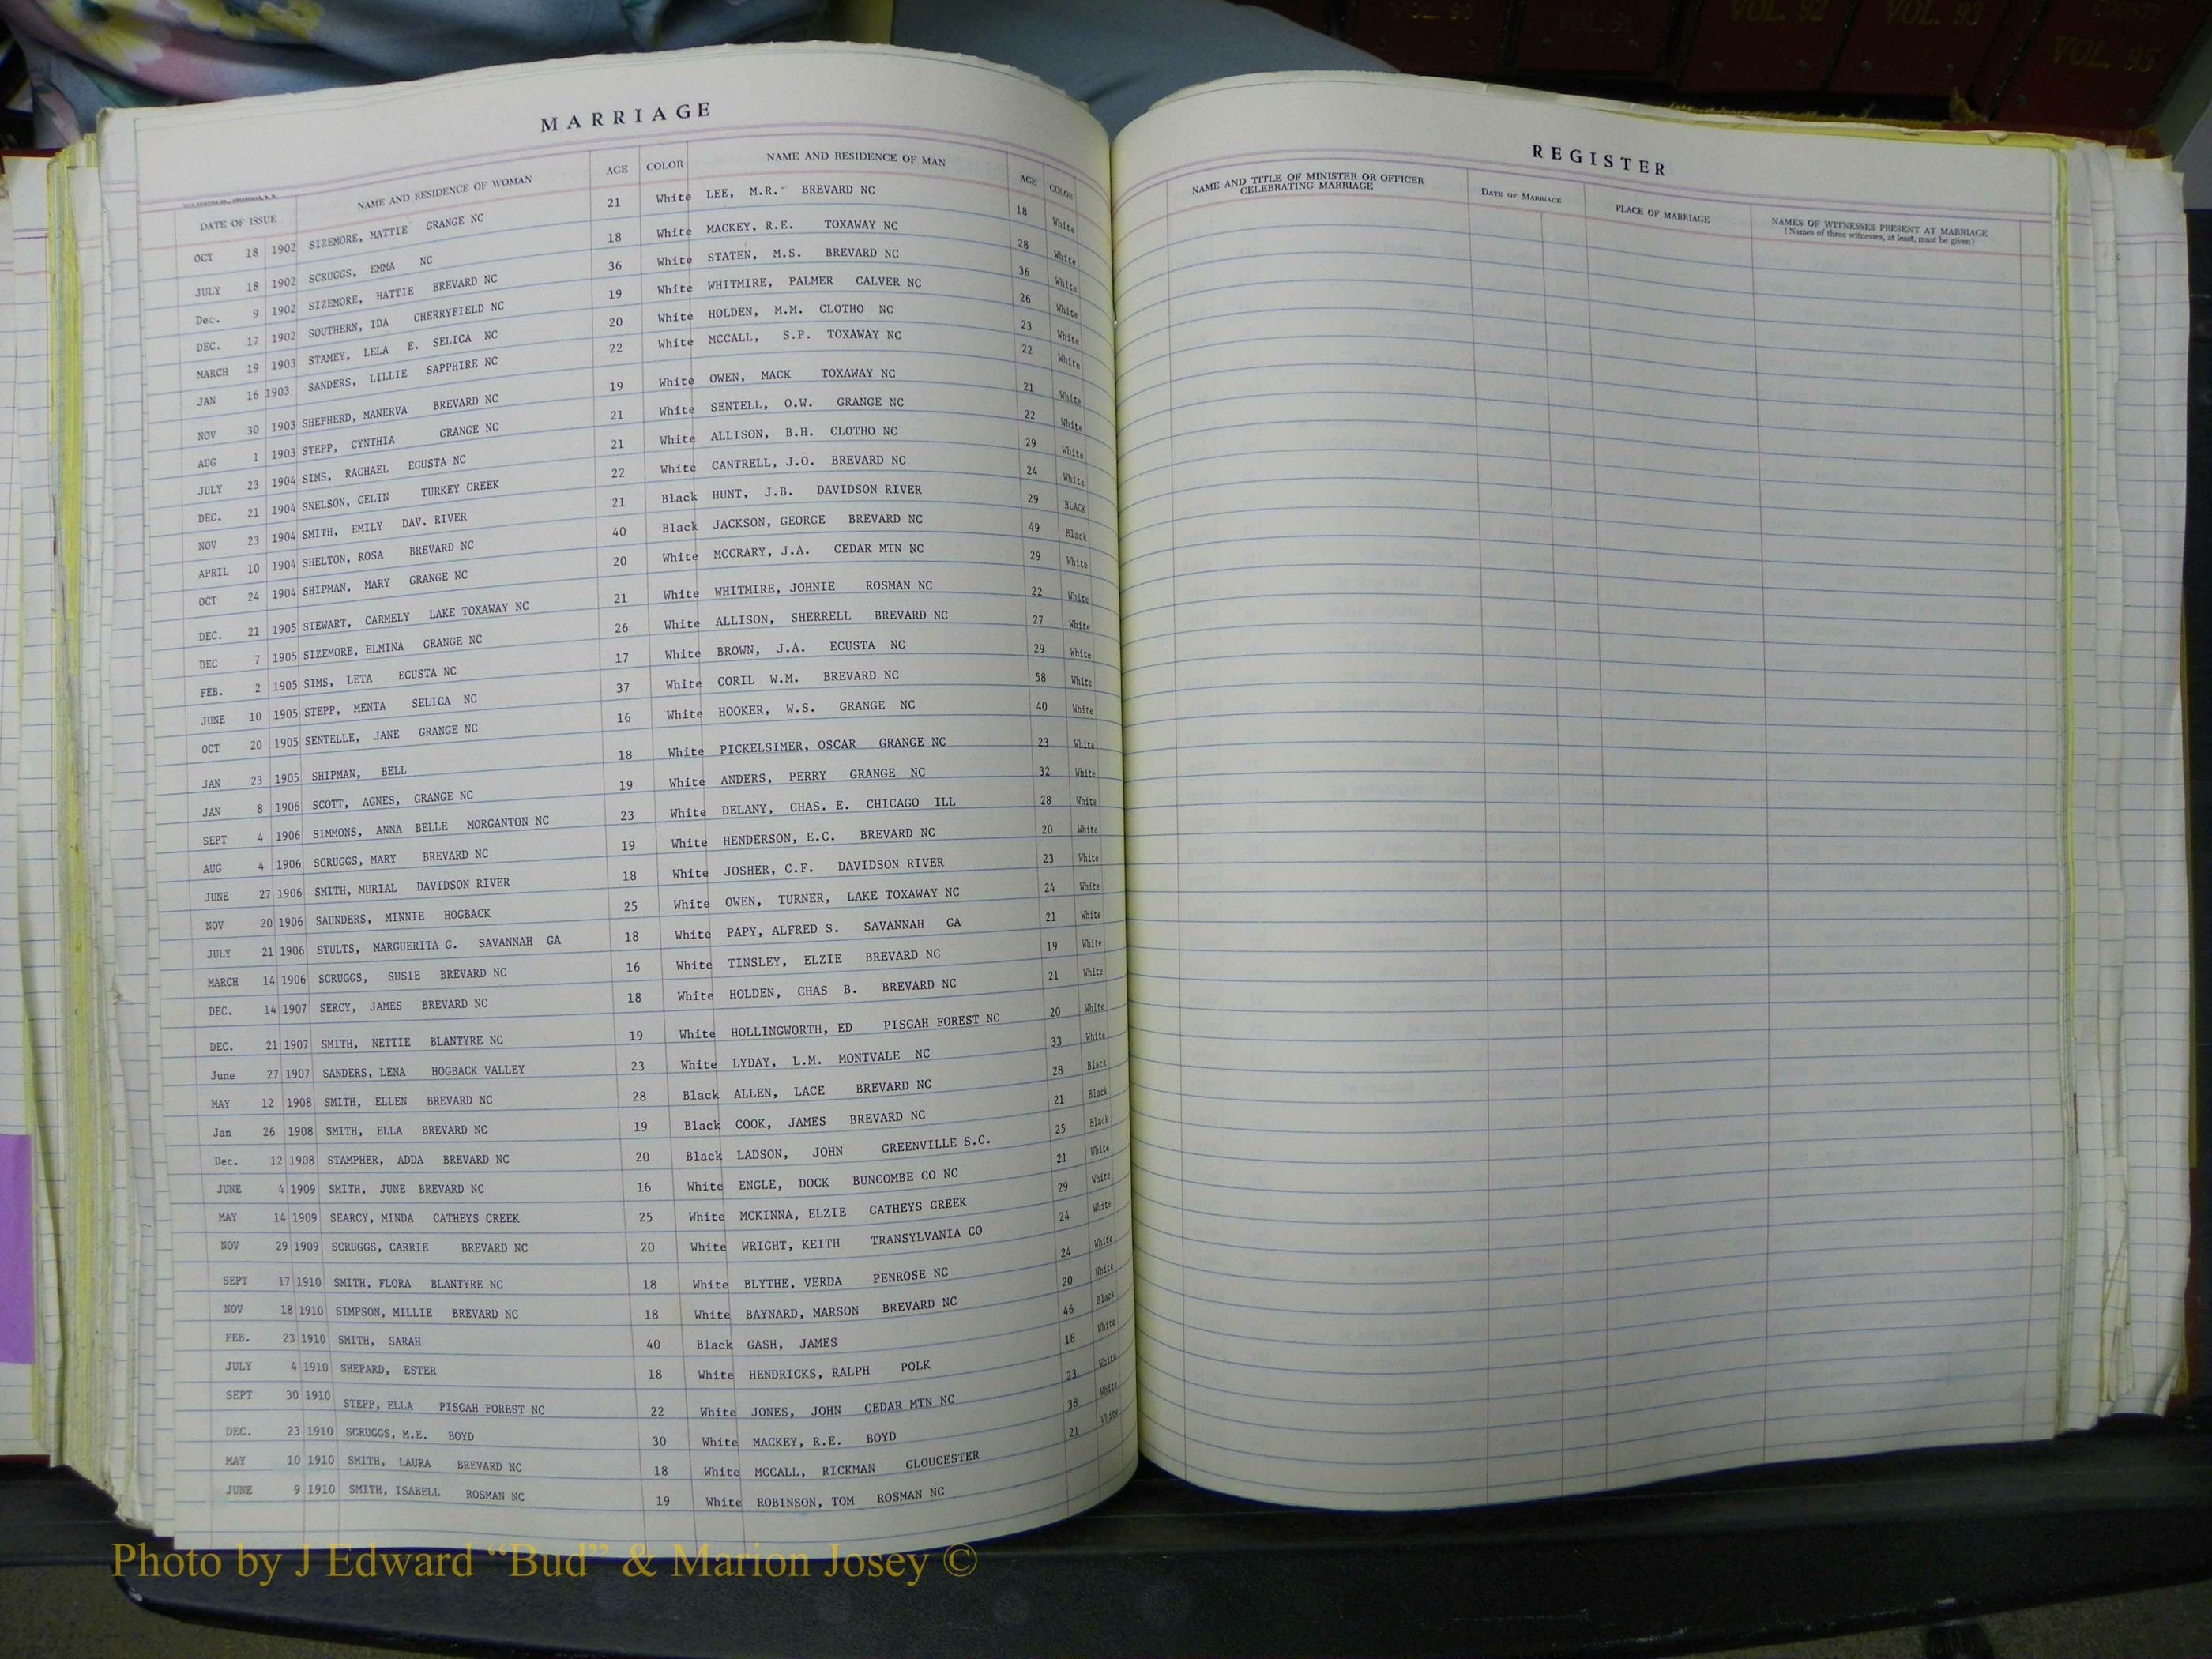 VOL. 90 VOL. 91 VOL. 92 VOL. 93 VOL. 95
MARRIAGE
DATE OF ISSUE NAME AND RESIDENCE OF WOMAN AGE COLOR NAME AND RESIDENCE OF MAN AGE COLOR
OCT 18 1902 SIZEMORE, MATTIE GRANGE NC 21 White LEE, M.R. BREVARD NC 18 White
JULY 18 1902 SCRUGGS, EMMA NC 18 White MACKEY, R.E. TOXAWAY NC 28 White
Dec. 9 1902 SIZEMORE, HATTIE BREVARD NC 36 White STATEN, M.S. BREVARD NC 36 White
DEC. 17 1902 SOUTHERN, IDA CHERRYFIELD NC 19 White WHITMIRE, PALMER CALVER NC 26 White
MARCH 19 1903 STAMEY, LELA E. SELICA NC 20 White HOLDEN, M.M. CLOTHO NC 23 White
JAN 16 1903 SANDERS, LILLIE SAPPHIRE NC 22 White MCCALL, S.P. TOXAWAY NC 22 White
NOV 30 1903 SHEPHERD, MANERVA BREVARD NC 19 White OWEN, MACK TOXAWAY NC 21 White
AUG 1 1903 STEPP, CYNTHIA GRANGE NC 21 White SENTELL, O.W. GRANGE NC 22 White
JULY 23 1904 SIMS, RACHAEL ECUSTA NC 21 White ALLISON, B.H. CLOTHO NC 29 White
DEC. 21 1904 SNELSON, CELIN TURKEY CREEK 22 White CANTRELL, J.O. BREVARD NC 24 White
NOV 23 1904 SMITH, EMILY DAV. RIVER 21 Black HUNT, J.B. DAVIDSON RIVER 29 BLACK
APRIL 10 1904 SHELTON, ROSA BREVARD NC 40 Black JACKSON, GEORGE BREVARD NC 49 Black
OCT 24 1904 SHIPMAN, MARY GRANGE NC 20 White MCCRARY, J.A. CEDAR MTN NC 29 White
DEC. 21 1905 STEWART, CARMELY LAKE TOXAWAY NC 21 White WHITMIRE, JOHNIE ROSMAN NC 22 White
DEC 7 1905 SIZEMORE, ELMINA GRANGE NC 26 White ALLISON, SHERRELL BREVARD NC 27 White
FEB. 2 1905 SIMS, LETA ECUSTA NC 17 White BROWN, J.A. ECUSTA NC 29 White
JUNE 10 1905 STEPP, MENTA SELICA NC 37 White CORIL W.M. BREVARD NC 58 White
OCT 20 1905 SENTELLE, JANE GRANGE NC 16 White HOOKER, W.S. GRANGE NC 40 White
JAN 23 1905 SHIPMAN, BELL 18 White PICKELSIMER, OSCAR GRANGE NC 23 White
JAN 8 1906 SCOTT, AGNES, GRANGE NC 19 White ANDERS, PERRY GRANGE NC 32 White
SEPT 4 1906 SIMMONS, ANNA BELLE MORGANTON NC 23 White DELANY, CHAS. E. CHICAGO ILL 28 White
AUG 4 1906 SCRUGGS, MARY BREVARD NC 19 White HENDERSON, E.C. BREVARD NC 20 White
JUNE 27 1906 SMITH, MURIAL DAVIDSON RIVER 18 White JOSHER, C.F. DAVIDSON RIVER 23 White
NOV 20 1906 SAUNDERS, MINNIE HOGBACK 25 White OWEN, TURNER, LAKE TOXAWAY NC 24 White
JULY 21 1906 STULTS, MARGUERITA G. SAVANNAH GA 18 White PAPY, ALFRED S. SAVANNAH GA 21 White
MARCH 14 1906 SCRUGGS, SUSIE BREVARD NC 16 White TINSLEY, ELZIE BREVARD NC 19 White
DEC. 14 1907 SERCY, JAMES BREVARD NC 18 White HOLDEN, CHAS B. BREVARD NC 21 White
DEC. 21 1907 SMITH, NETTIE BLANTYRE NC 19 White HOLLINGWORTH, ED PISGAH FOREST NC 20 White
June 27 1907 SANDERS, LENA HOGBACK VALLEY 23 White LYDAY, L.M. MONTVALE NC 33 White
MAY 12 1908 SMITH, ELLEN BREVARD NC 28 Black ALLEN, LACE BREVARD NC 28 Black
Jan 26 1908 SMITH, ELLA BREVARD NC 19 Black COOK, JAMES BREVARD NC 21 Black
Dec. 12 1908 STAMPHER, ADDA BREVARD NC 20 Black LADSON, JOHN GREENVILLE S.C. 25 Black
JUNE 4 1909 SMITH, JUNE BREVARD NC 16 White ENGLE, DOCK BUNCOMBE CO NC 21 White
MAY 14 1909 SEARCY, MINDA CATHEYS CREEK 25 White MCKINNA, ELZIE CATHEYS CREEK 29 White
NOV 29 1909 SCRUGGS, CARRIE BREVARD NC 20 White WRIGHT, KEITH TRANSYLVANIA CO 24 White
SEPT 17 1910 SMITH, FLORA BLANTYRE NC 18 White BLYTHE, VERDA PENROSE NC 24 White
NOV 18 1910 SIMPSON, MILLIE BREVARD NC 18 White BAYNARD, MARSON BREVARD NC 20 White
FEB. 23 1910 SMITH, SARAH 40 Black GASH, JAMES 46 Black
JULY 4 1910 SHEPARD, ESTER 18 White HENDRICKS, RALPH POLK 18 White
SEPT 30 1910 STEPP, ELLA PISGAH FOREST NC 22 White JONES, JOHN CEDAR MTN NC 23 White
DEC. 23 1910 SCRUGGS, M.E. BOYD 30 White MACKEY, R.E. BOYD 38 White
MAY 10 1910 SMITH, LAURA BREVARD NC 18 White MCCALL, RICKMAN GLOUCESTER 21 White
JUNE 9 1910 SMITH, ISABELL ROSMAN NC 19 White ROBINSON, TOM ROSMAN NC
REGISTER
NAME AND TITLE OF MINISTER OR OFFICER CELEBRATING MARRIAGE DATE OF MARRIAGE PLACE OF MARRIAGE NAMES OF WITNESSES PRESENT AT MARRIAGE
(Names of three witnesses, at least, must be given)
Photo by J Edward “Bud” & Marion Josey ©